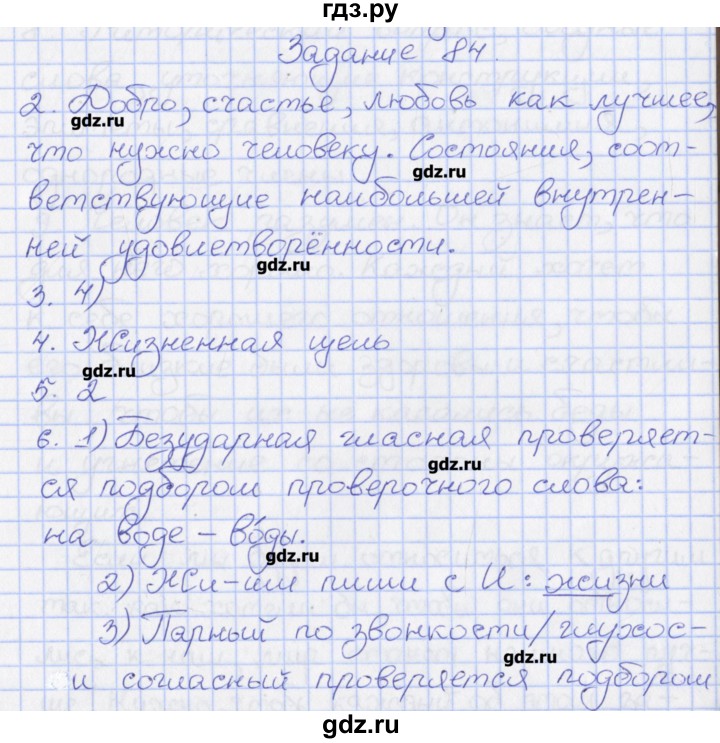 гдз.ру
Задание 84.
2. Добро, счастье, любовь как лучшее,
gdz.ru
что нужно человеку. Состояния, соот-
gdz.ru
ветствующие наибольшей внутрен-
ней удовлетворённости.
gdz.ru
3. 4)
4. Жизненная цель
gdz.ru
5. 2
6. 1) Безударная гласная проверяет-
gdz.ru
ся подбором проверочного слова:
на воде – во́ды.
gdz.ru
2) Жи-ши пиши с И: жизни
3) Парный по звонкости/глухос-
gdz.ru
и согласный проверяется подбором
gdz.ru